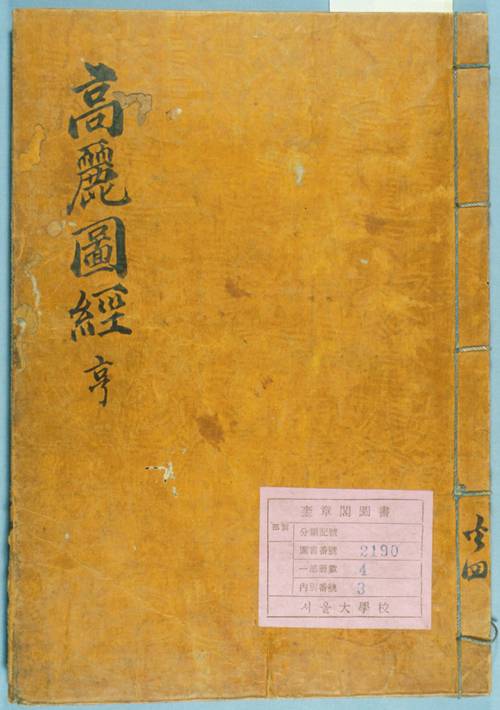 高麗圖經 亨
奎章閣圖書
分類記號
圖書番號 2190
一部冊數 4
內別番號 3
서울大學校
共四